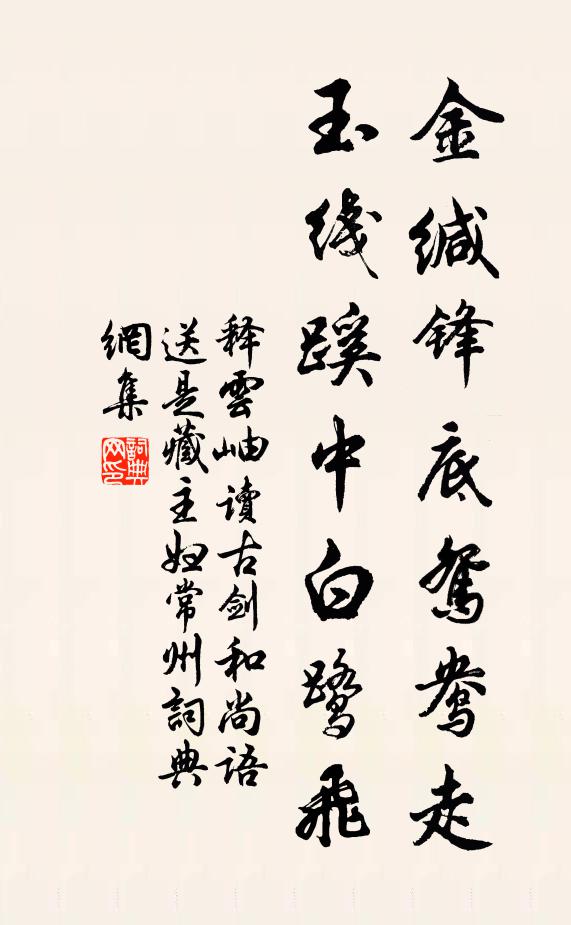 金缄锋底鸳鸯走
玉线蹊中白鹭飞
释雲岫读古剑和尚语
送是藏主如常州詞典
網集
詞典网印